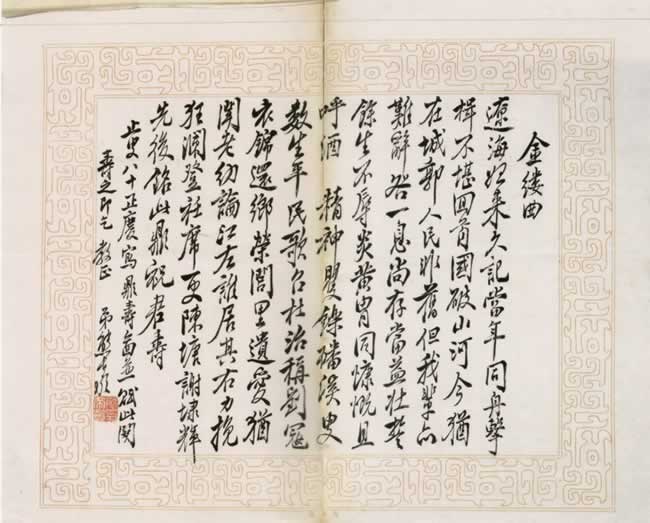 金缕曲
遼海歸来久記當年同舟擊
楫不堪回首國破山河今猶
在城郭人民非舊但我輩亦
難辭咎一息尚存當益壯誓
餘生不辱炎黄胄同慷慨且
呼酒 精神矍鑠磻溪叟
数生平民歌召杜治稱劉寇
衣錦還鄉榮閭里遺愛猶
関老幼論江左誰居其右力挽
狂瀾登衽席更陳塘謝埭輝
先後銘此鼎祝君壽
止叟八十正慶寫鼎壽啚並賦此闋
壽之即乞 教正 弟熊